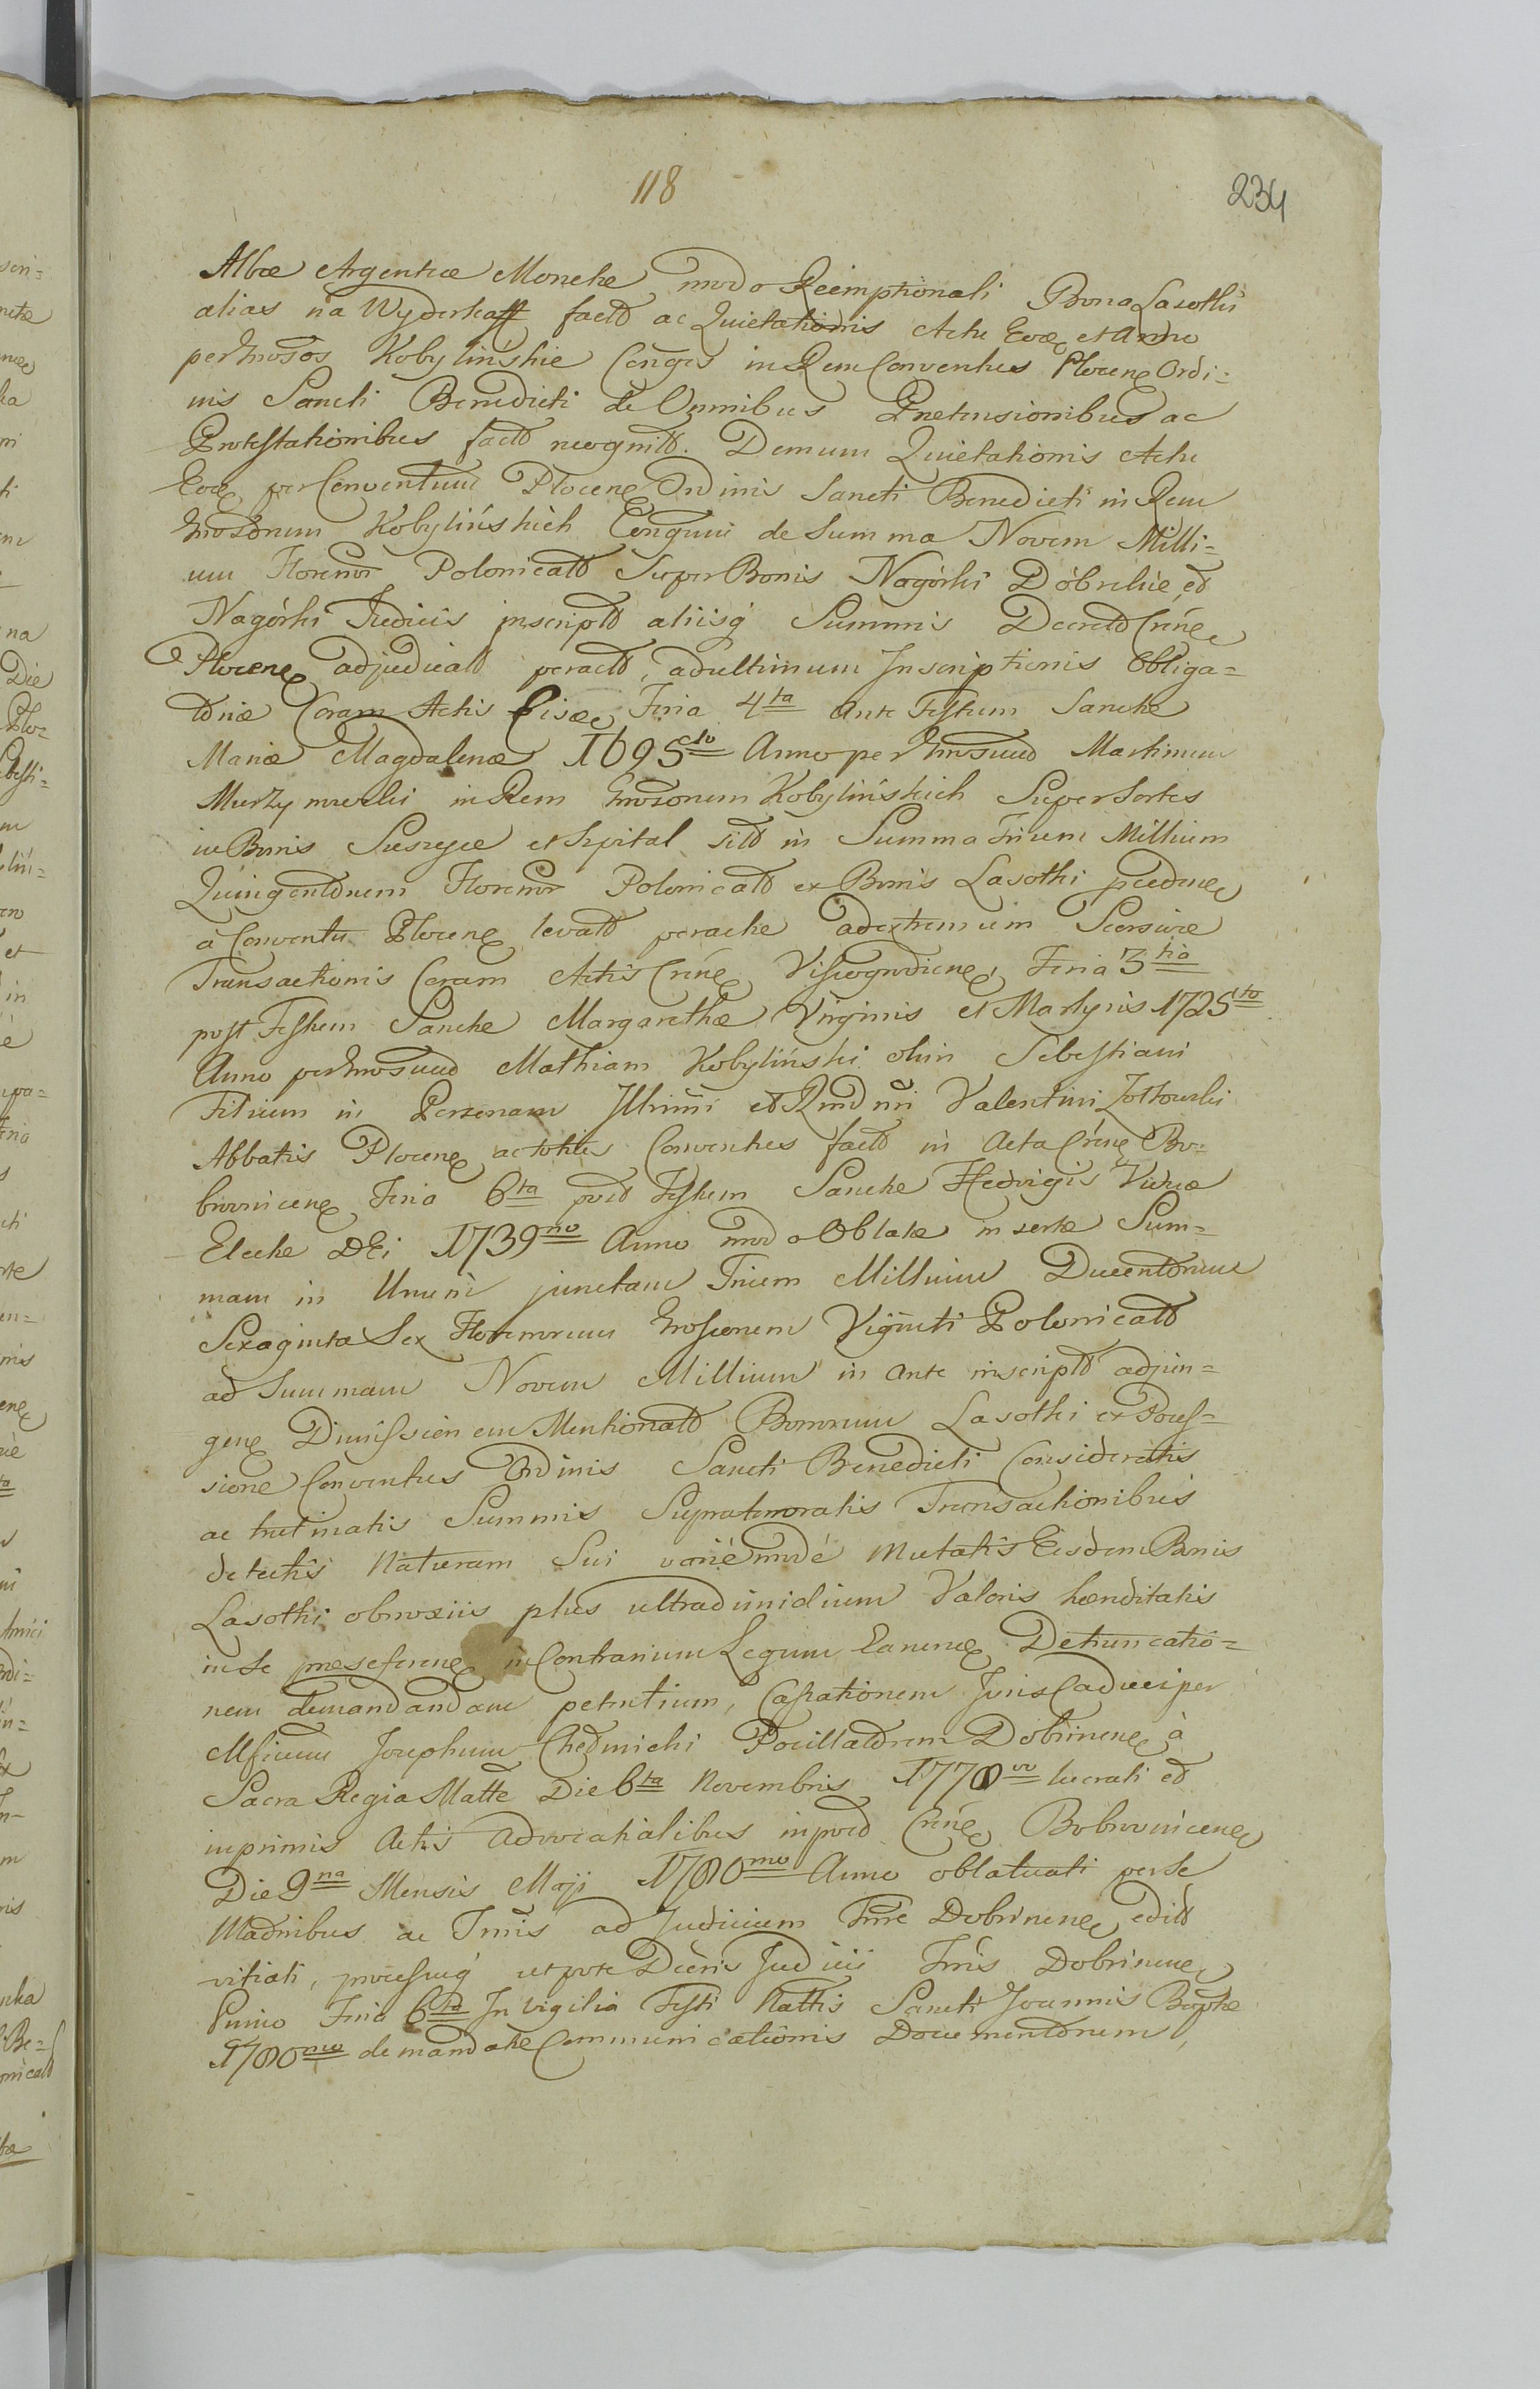 118
234
Albæ Argenteæ Monetæ modo Reemptionali Bona Lasothi
alias na Wyderkaff factō ac Quietationis Actu Eođ et Anno
per Grosos Kobylińskie Conges in Rem Conventus Plocenȩ Ordi=
nis Sancti Benedicti de Omnibus Prætensionibus ac
Protestationibus factō recognitō. Demum Quietationis Actu
Eođ per Conventum Plocenȩ Ordinis Sancti Benedicti in Rem
Grosorum Kobylińskich Congum de Summa Novem Milli=
um Florenor Polonicalō Super Bonis Nagórki Dobrskie, et
Nagórki Judicis inscriptō aliisq Summis Decretō Crinē
Plocenȩ adjudicatō peractō, ad ultimum Inscriptionis Obliga=
tōriæ Coram Actis Feria 4ta ante Festum Sanctæ
Mariæ Magdalenæ 1695to Anno per Grosum Martinum
in Rem Grosorum Kobylińskich Super Sortes
in Bonis et Szpital sitō in Summa Trium Millium
Quingentorum Florenor Polonicalō ex Bonis Lasothi
à Conventu Plocenȩ levatō peractæ ad extremum
Transactionis Coram Actis Crinē Feria 3tia
post Festum Sanctæ Margarethæ Virginis et Martyris 1725to
Anno per Grosum Mathiam Kobyliński olim Sebestiani
Filium in Personam Illrimi et Rmdmi Valentini Zołtowski
Abbatis Plocenȩ ac totius Conventus factō in Acta Crinē Bo=
brownicenȩ Feria 6ta post Festum Sanctæ Hedvigis Viduæ
Electæ DEi 1739no Anno modo Oblatæ insertæ Sum=
mam in Unum junctam Trium Millium Ducentorum
Sexaginta Sex Florenorum Grossorum Viginti Polonicalō
ad Summam Novem Millium in ante inscriptō adjun=
genȩ Dimissionem Mentionatō Bonorum Lasothi ex Posses=
sione Conventus Ordinis Sancti Benedicti Consideratis
ac trutinatis Summis Supratenoratis Transactionibus
detectis Naturam Sui variè modè Mutatis Eisdem Bonis
Lasothi obnoxiis plus ultra dimidium Valoris hæreditatis
in se præseferenȩ in Contrarium Legum Detruncatio=
nem demandandam petentium, Cassationem Juris Caduci per
Mficum Josephum Chedmicki Dobrinenȩ à
Sacra Regia Matte Die 6ta Novembris lucrati et
inprimis Actis Advocatialibus inpost Crinē Bobrownicenȩ
Die 9na Mensis Maji 1780mo Anno oblatuati per Se
ac Trris ad Judicium Trre Dobrinenȩ editō
vitiati, utpote Judicii Trris Dobrinenȩ
Primo Feria 6ta In Vigilia Festi Nattis Sancti Joannis Bapthæ
1780mo demandatæ Communicationis Documentorum,